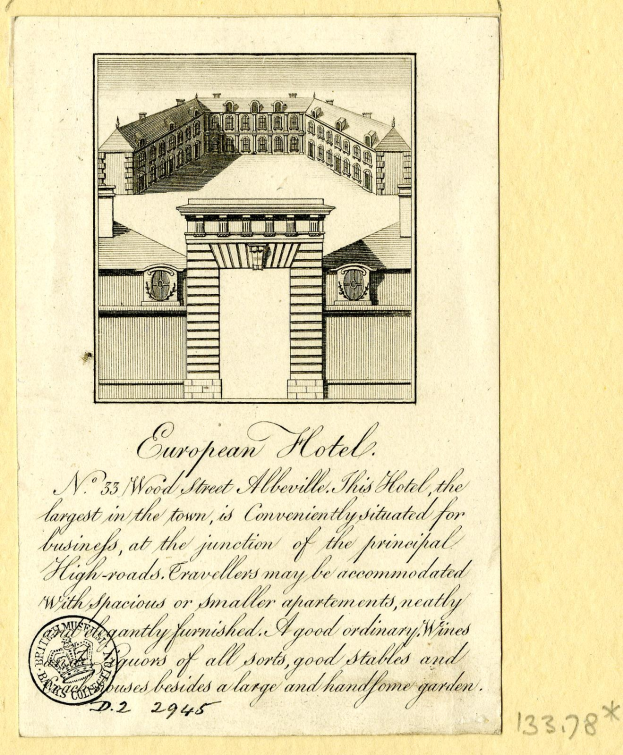 European Hotel.
N.o 33 Wood Street Abbeville. This Hotel, the
largest in the town, is Conveniently situated for
business, at the junction of the principal
High-roads. Travellers may be accommodated
With spacious or smaller apartements, neatly
gantly furnished. A good ordinary, Wines
quors of all sorts, good stables and
ouses besides a large and handsome garden.
BRITISH MUSEUM
BANKS COLLECTION
D.2 2945
133.78*